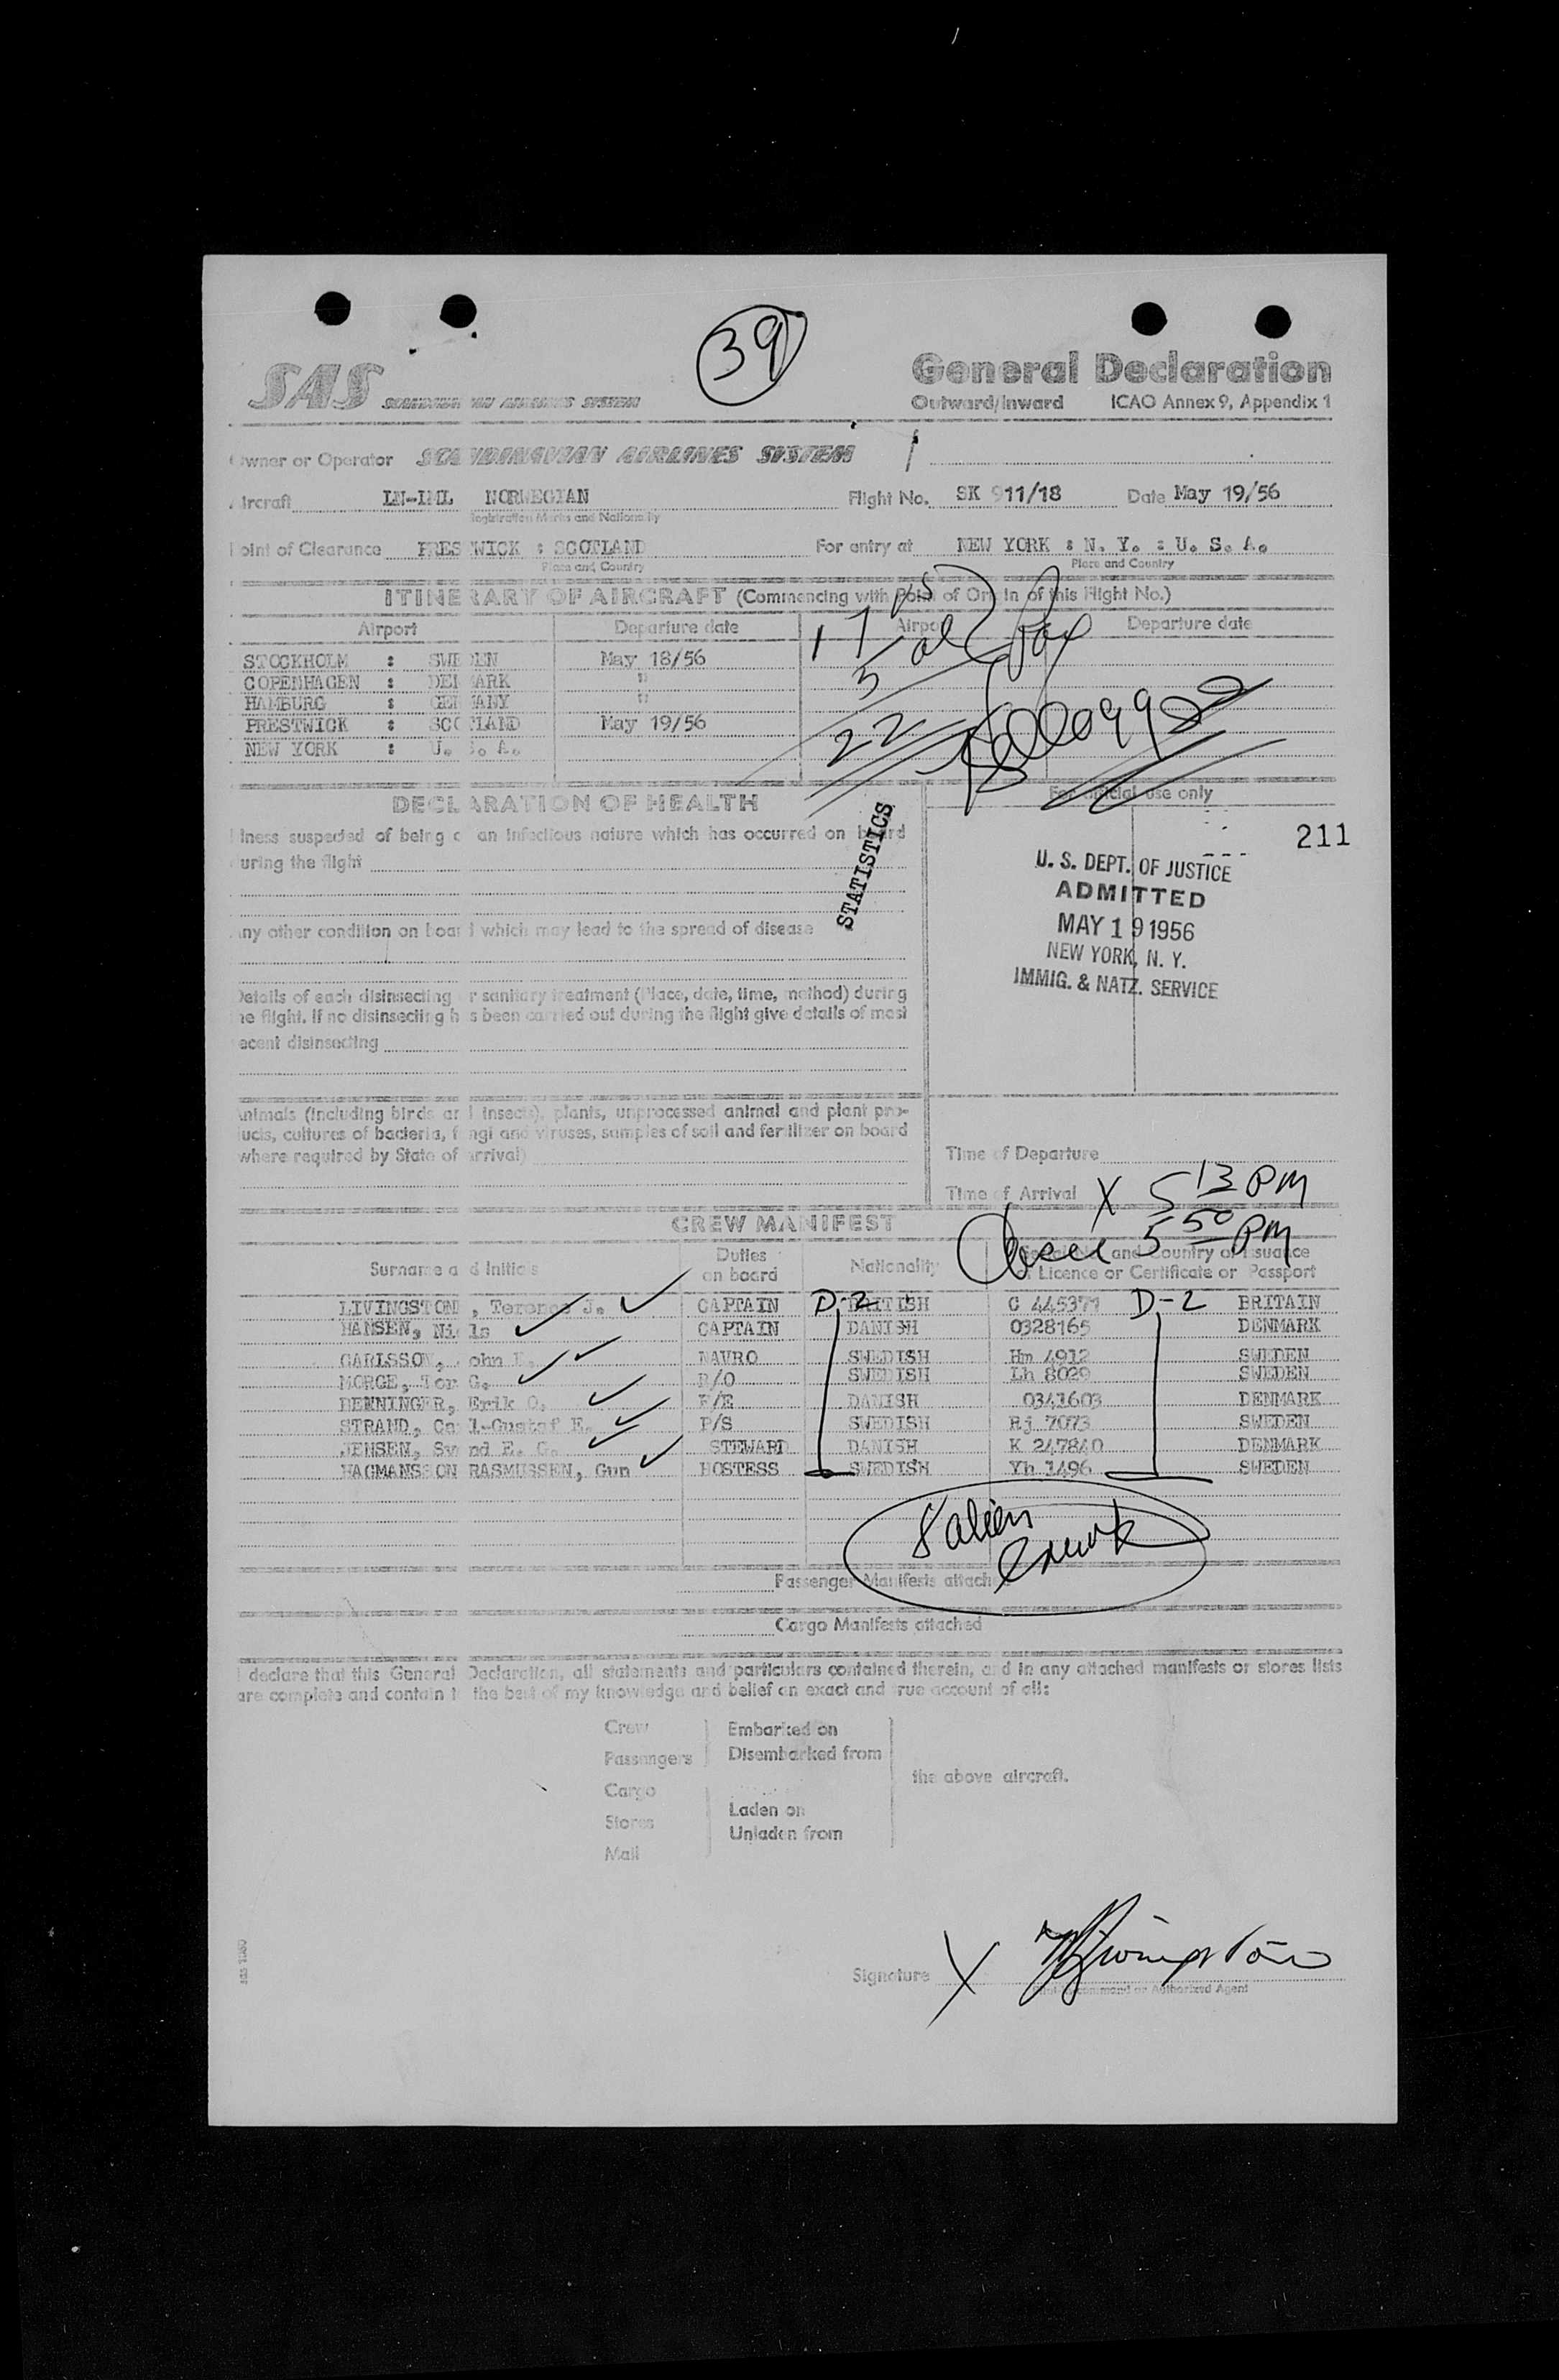 39
SAS SCANDINAVIAN AIRLINES SYSTEM
General Declaration
Outward/Inward ICAO Annex 9, Appendix 1
Owner or Operator SCANDINAVIAN AIRLINES SYSTEM
Aircraft LN-LML NORWEGIAN Flight No. SK 911/18 Date May 19/56
Registration Marks and Nationality
Point of Clearance PRESTWICK : SCOTLAND For entry at NEW YORK : N. Y. : U. S. A.
Place and Country Place and Country
ITINERARY OF AIRCRAFT (Commencing with Point of Origin of this Flight No.)
Airport Departure date Airport Departure date
17 us
5 al Pax
22
STOCKHOLM : SWEDEN May 18/56
COPENHAGEN : DENMARK "
HAMBURG : GERMANY "
PRESTWICK : SCOTLAND May 19/56
NEW YORK : U. S. A.
DECLARATION OF HEALTH
For official use only
Illness suspected of being of an infectious nature which has occurred on board
during the flight
STATISTICS
211
U. S. DEPT. OF JUSTICE
ADMITTED
MAY 19 1956
NEW YORK, N. Y.
IMMIG. & NATZ. SERVICE
Any other condition on board which may lead to the spread of disease
Details of each disinsecting or sanitary treatment (Place, date, time, method) during
the flight. If no disinsecting has been carried out during the flight give details of most
recent disinsecting
Animals (including birds and insects), plants, unprocessed animal and plant pro-
ducts, cultures of bacteria, fungi and viruses, samples of soil and fertilizer on board
where required by State of arrival)
Time of Departure
Time of Arrival X 5 13 PM
5 50 PM
CREW MANIFEST
Surname and Initials Duties on board Nationality and Country of Issuance of Licence or Certificate or Passport
LIVINGSTON, Terence J. CAPTAIN D-2 BRITISH C 445371 D-2 BRITAIN
HANSEN, Niels CAPTAIN DANISH 0328165 DENMARK
CARLSSON, John E. NAVRO SWEDISH Hm 4912 SWEDEN
MORGE, Tor G. R/O SWEDISH Lh 8029 SWEDEN
HENNINGER, Erik O. F/E DANISH 0341603 DENMARK
STRAND, Carl-Gustaf E. P/S SWEDISH Rj 7073 SWEDEN
JENSEN, Svend E. G. STEWARD DANISH K 247840 DENMARK
HAGMANSSON RASMUSSEN, Gun HOSTESS SWEDISH Yh 1496 SWEDEN
8 alien
crew
Passenger Manifests attached
Cargo Manifests attached
I declare that this General Declaration, all statements and particulars contained therein, and in any attached manifests or stores lists
are complete and contain to the best of my knowledge and belief an exact and true account of all:
Crew
Passengers
Embarked on
Disembarked from
Cargo
Stores
Mail
Laden on
Unladen from
the above aircraft.
Signature X Livingston
Authorized Agent